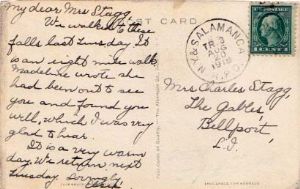 My dear Mrs Stagg
We walked to these
falls last Tuesday. It
is an eight mile walk.
Madeline wrote she
had been out to see
you and found you
well, which I was very
glad to hear.
It is a very warm
day. We return next
Tuesday Lovingly
POST CARD
N.Y. & SALAMANCA
TR 3
AUG
1918
R.P.O.
1 CENT 1
Mrs Charles Stagg,
"The Gables"
Bellport,
L.I.